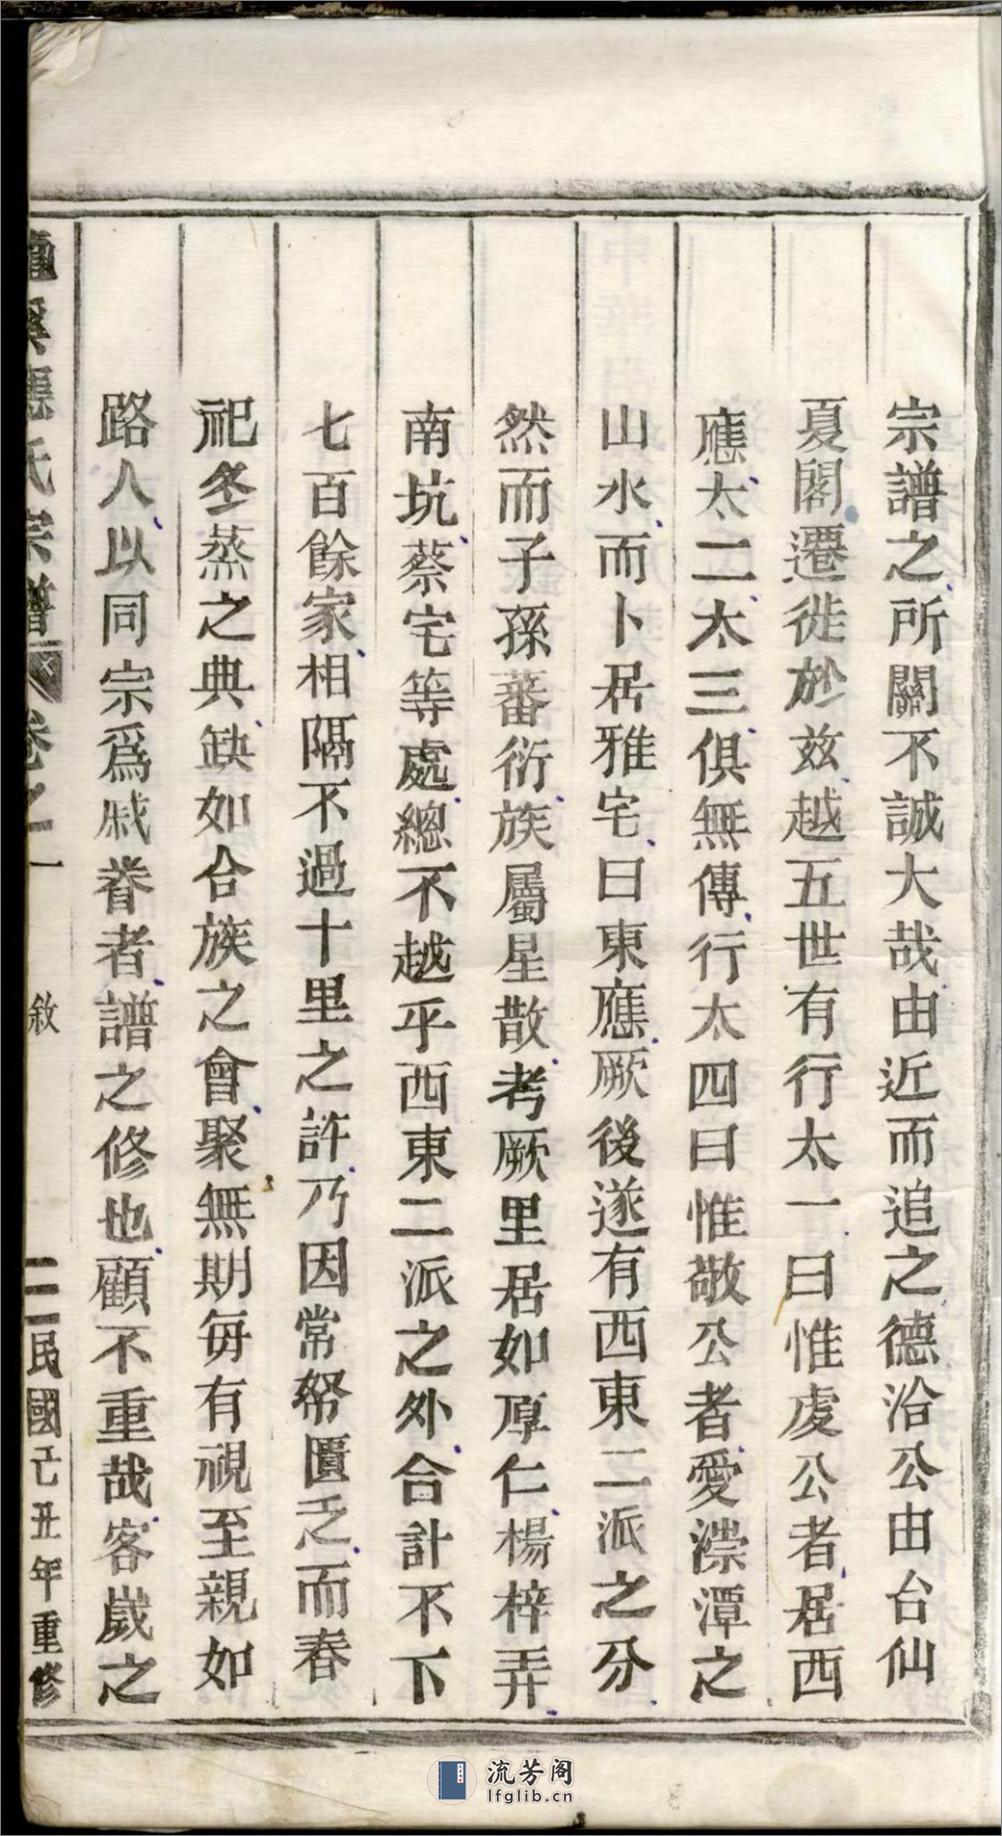 宗譜之所關不誠大哉由近而追之德洽公由台仙
夏閣遷徙於兹越五世有行太一曰惟虔公者居西
應太二太三俱無傳行太四曰惟敬公者愛漴潭之
山水而卜居雅宅曰東應厥後遂有西東二派之分
然而子孫蕃衍族屬星散考厥里居如厚仁楊梓弄
南坑蔡宅等處總不越乎西東二派之外合計不下
七百餘家相隔不過十里之許乃因常帑匱乏而春
祀冬蒸之典缺如合族之會聚無期每有視至親如
路人以同宗爲戚眷者譜之修也顧不重哉客歲之
溪應氏宗譜
卷之一
敘
二
民國己丑年重修
流芳阁
lfglib.cn